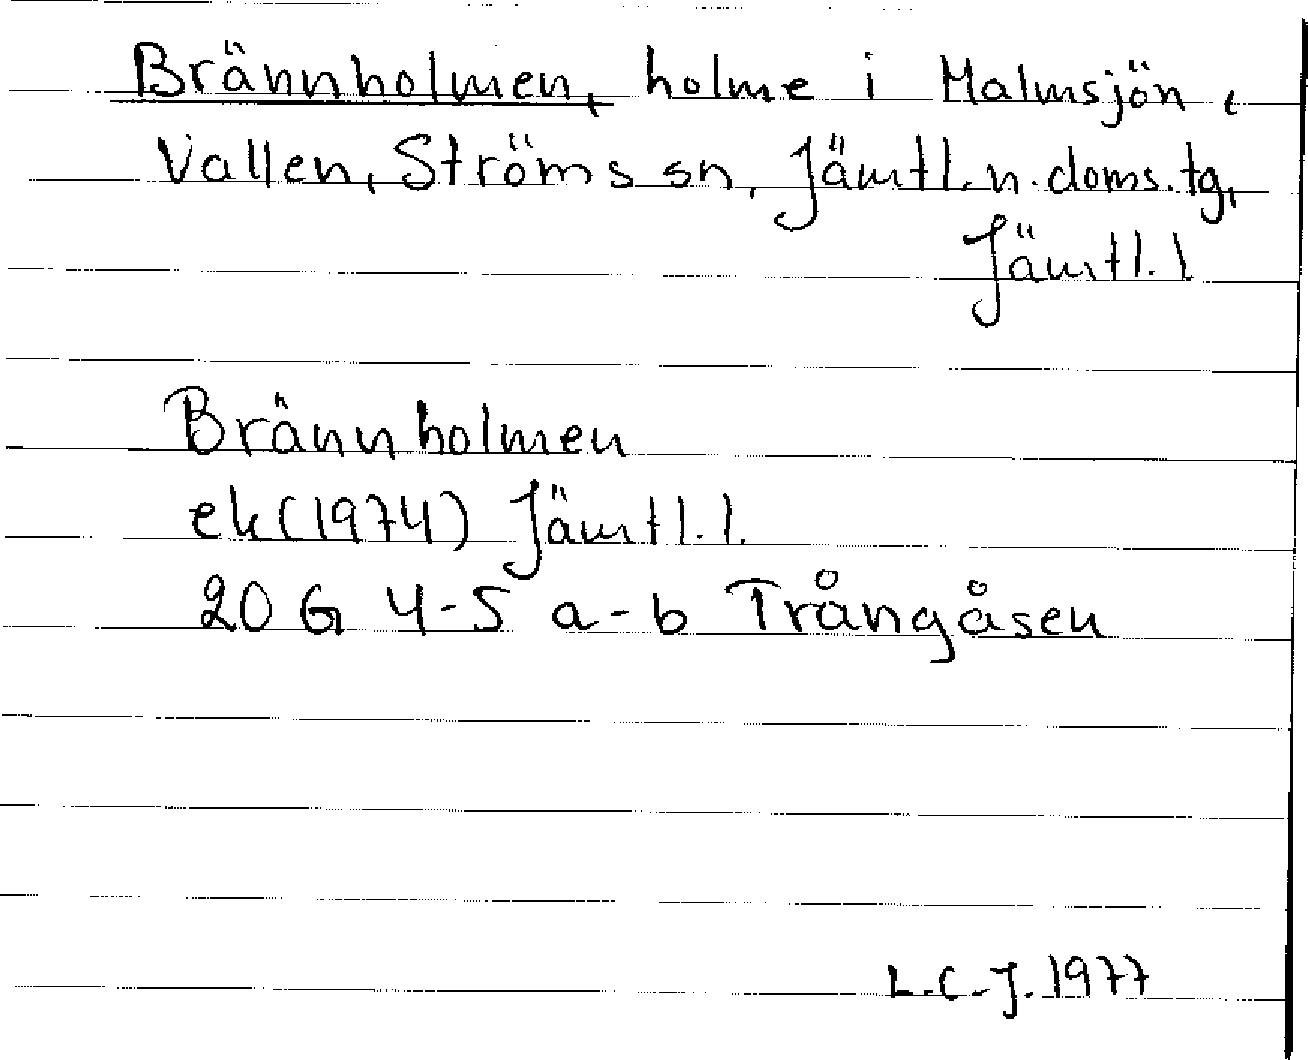 Brännholmen, holme i Malmsjön,
Vallen, Ströms sn, Jämtl. n. doms. tg,
Jämtl. l
Brännholmen
ek (1974) Jämtl. l.
20 G 4-5 a-b Trångåsen
L.C-J. 1977